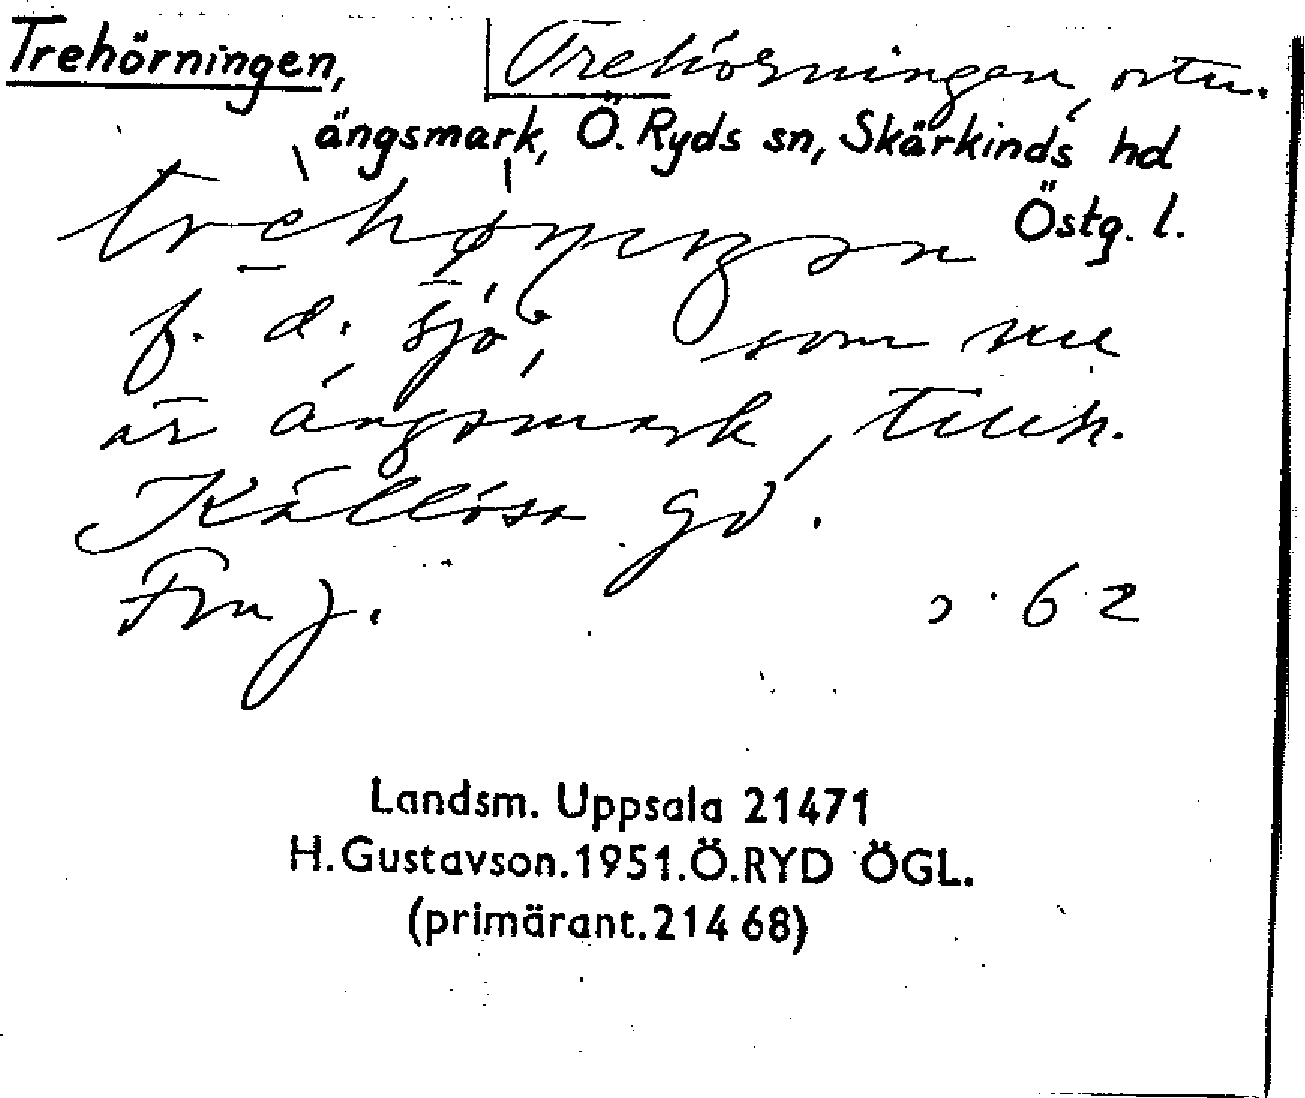 Trehörningen, Trehörningen, ortn.
ängsmark, Ö. Ryds sn, Skärkinds hd
Östg. l.
f. d. sjö, som nu
är ängsmark, tillh.
Källösa gd.
62
Landsm. Uppsala 21471
H. Gustavson. 1951. Ö. RYD ÖGL.
(primärant. 21468)